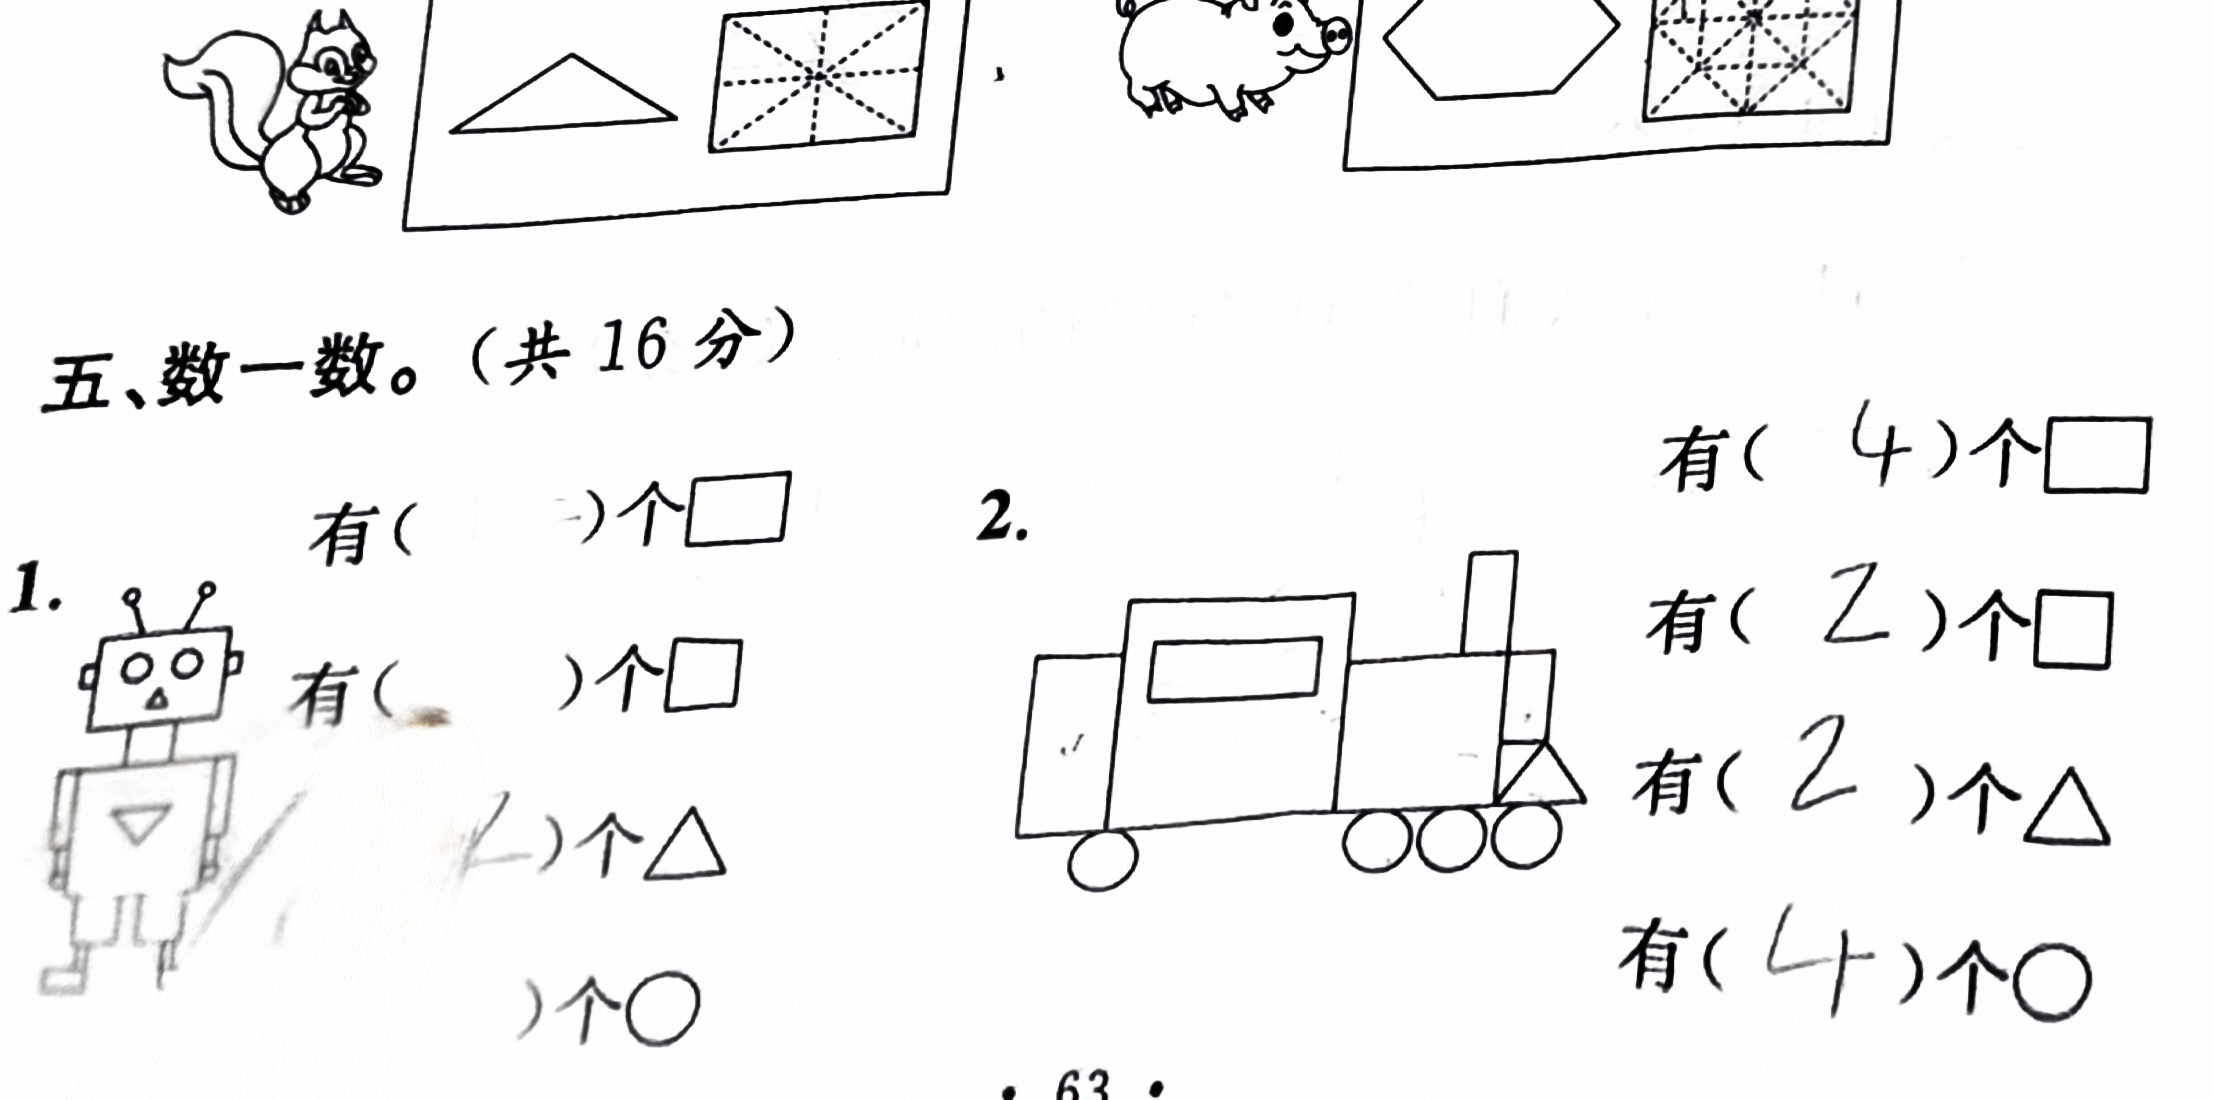 五、数一数。（共 16 分）
1.
有（ ）个
有（ ）个
2）个
）个
2.
有（ 4 ）个
有（ 2 ）个
有（ 2 ）个
有（ 4 ）个
· 63 ·